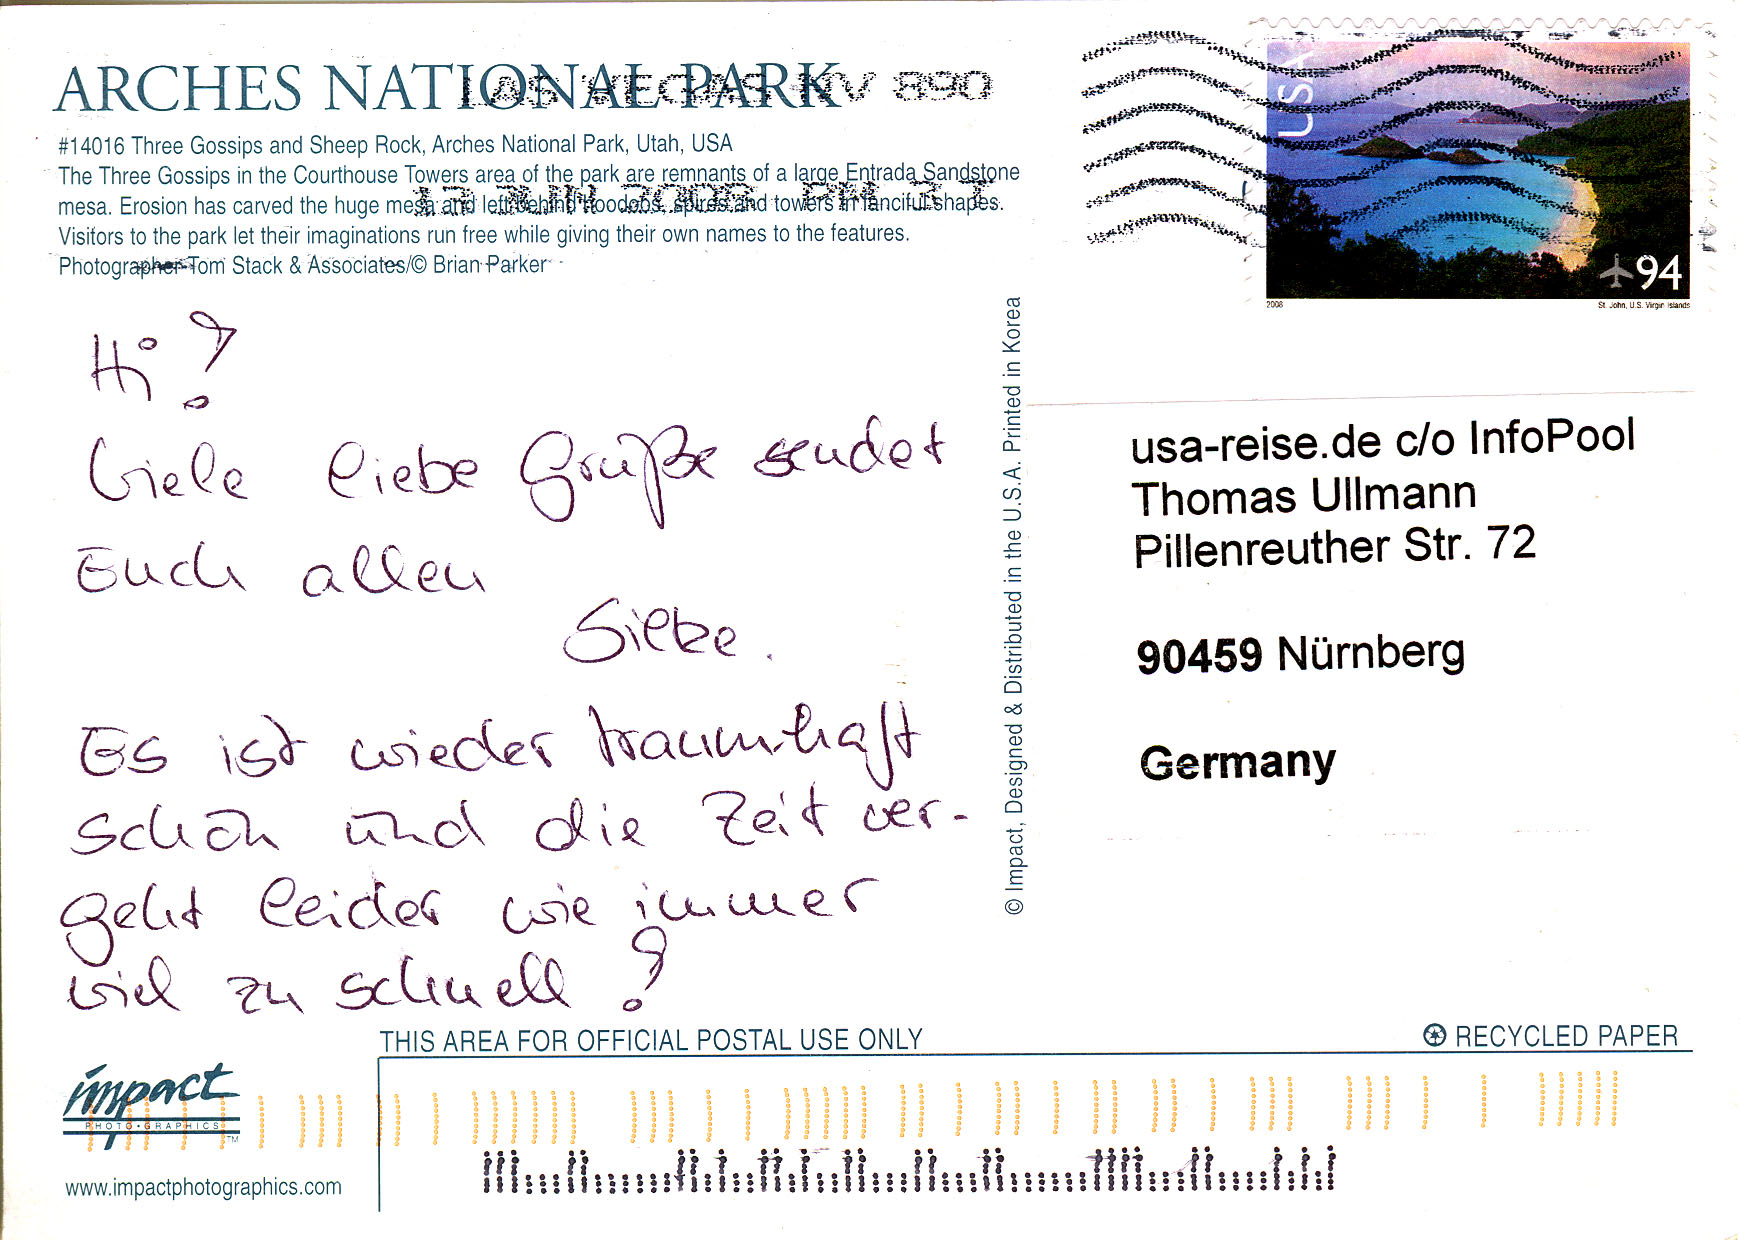 ARCHES NATIONAL PARK
LAS VEGAS NV 890
#14016 Three Gossips and Sheep Rock, Arches National Park, Utah, USA
The Three Gossips in the Courthouse Towers area of the park are remnants of a large Entrada Sandstone
mesa. Erosion has carved the huge mesa and left behind hoodoos, spires and towers in fanciful shapes.
Visitors to the park let their imaginations run free while giving their own names to the features.
Photographer Tom Stack & Associates/© Brian Parker
JUN 2009 PM
USA
94
2008
St. John, U.S. Virgin Islands
Hi!
Viele liebe Grüße sendet
Euch allen
Silke.
Es ist wieder traumhaft
schön und die Zeit ver-
geht leider wie immer
viel zu schnell!
© Impact, Designed & Distributed in the U.S.A. Printed in Korea
usa-reise.de c/o InfoPool
Thomas Ullmann
Pillenreuther Str. 72
90459 Nürnberg
Germany
THIS AREA FOR OFFICIAL POSTAL USE ONLY
RECYCLED PAPER
impact
PHOTO•GRAPHICS
TM
www.impactphotographics.com